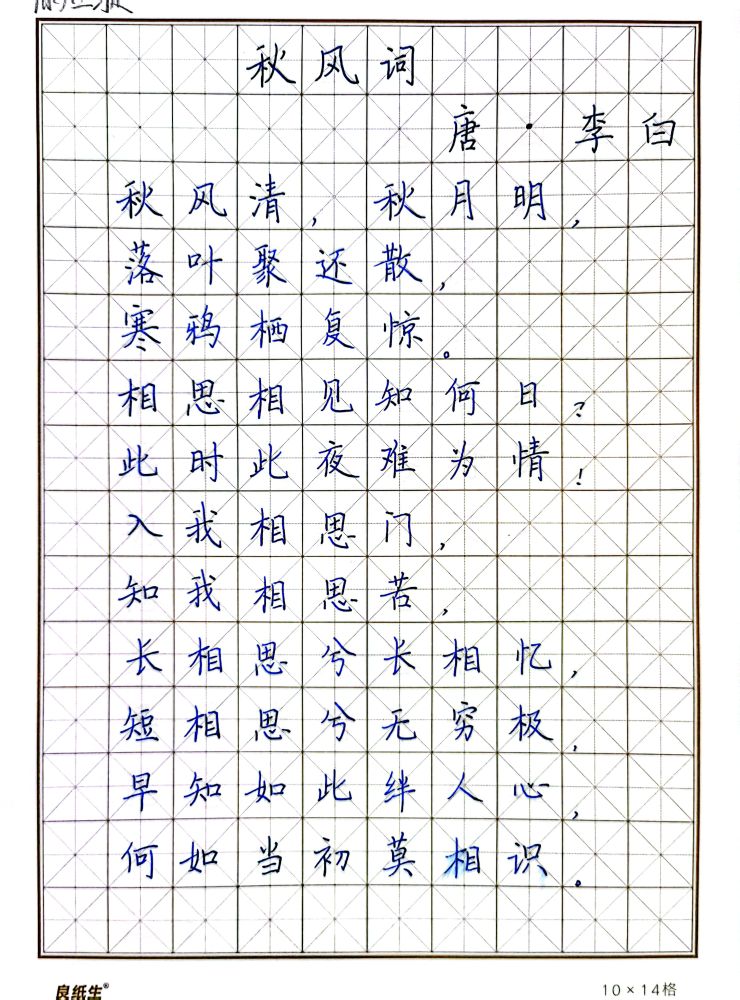 秋风词
唐·李白
秋风清,秋月明,
落叶聚还散,
寒鸦栖复惊。
相思相见知何日?
此时此夜难为情!
入我相思门,
知我相思苦,
长相思兮长相忆,
短相思兮无穷极,
早知如此绊人心,
何如当初莫相识。
良纸生®
10×14格